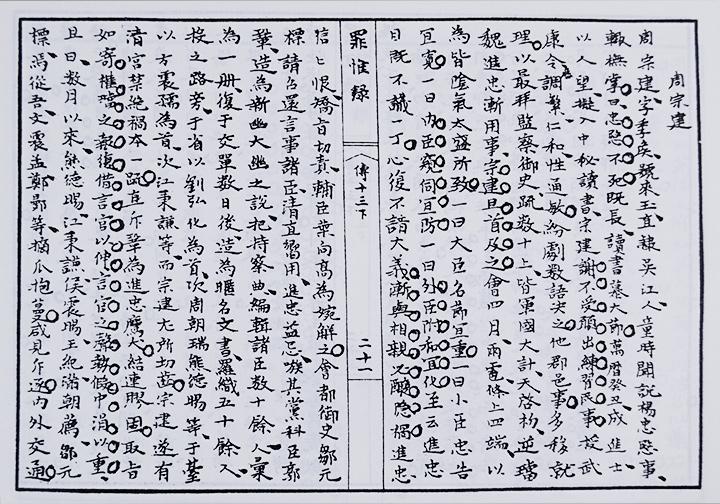 周宗建
周宗建字季侯號來玉直隸吳江人童時聞說楊忠愍事
輒撫掌曰忠愍不死既長讀書慕大節萬曆癸丑成進士
以人望擬入中秘讀書宗建謝不受願出練習民事授武
康令調繁仁和性通敏紛劇數語决之他郡邑事多移就
理以最拜監察御史疏數十上皆軍國大計天啓初逆璫
魏進忠漸用事宗建旦首及之會四日雨雹條上四端以
為皆陰氣太盛所致一曰大臣名節宜重一曰小臣忠告
宜寬一曰內臣窺伺宜防一曰外臣附和宜化至云進忠
目既不識一丁心復不諳大義漸與相親又釀隱禍進忠
罪惟錄
傳十三下
二十一
信上恨矯旨切責輔臣葉向高為婉解之會都御史鄒元
標請召還言事諸臣清直響用進忠益忌嗾其黨科臣郭
鞏造為新幽大幽之說把持察典編輯諸臣數十餘人彙
為一冊復于交單數日後造為匿名文書羅織五十餘人
投之路旁于省以劉弘化為首次周朝瑞熊德陽等于臺
以方震孺為首次江秉謙等而宗建尤所切齒宗建遂有
清宮禁絕禍本一疏直斥鞏為進忠鷹犬結連膠固取旨
如寄摧璫之報復借言官以伸言官之聲勢假中涓以重
且曰數月以來熊德陽江秉謙侯震暘王紀滿朝薦鄒元
標馮從吾文震孟鄭鄤等摘瓜抱蔓咸見斥逐內外交通